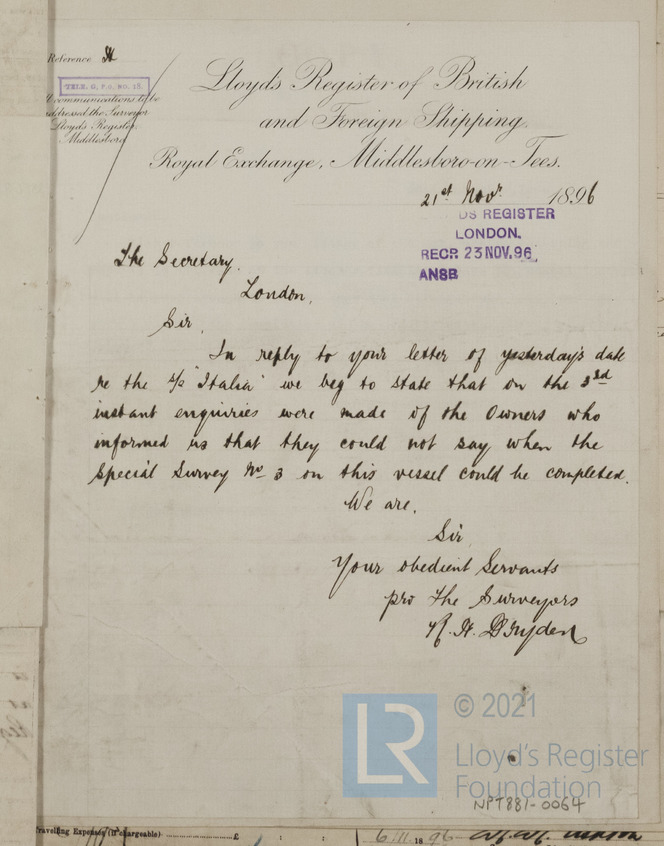 Reference H
TELE. G, P.O. NO. 18.
All communications to be
addressed the Surveyor
Lloyds Register,
Middlesboro
Lloyds Register of British
and Foreign Shipping.
Royal Exchange, Middlesboro-on-Tees.
21st Novr 1896
DS REGISTER
LONDON.
RECD. 23 NOV. 96
ANSD
The Secretary,
London,
Sir,
In reply to your letter of yesterday's date
re the S/S "Italia" we beg to state that on the 3rd
instant enquiries were made of the Owners who
informed us that they could not say when the
Special Survey No 3 on this vessel could be completed.
We are,
Sir,
Your obedient Servants
pro The Surveyors
H. Dryden
LR © 2021
Lloyd's Register
Foundation
NPT881-0064
Travelling Expenses (if chargeable) £ : :
6.11.1896